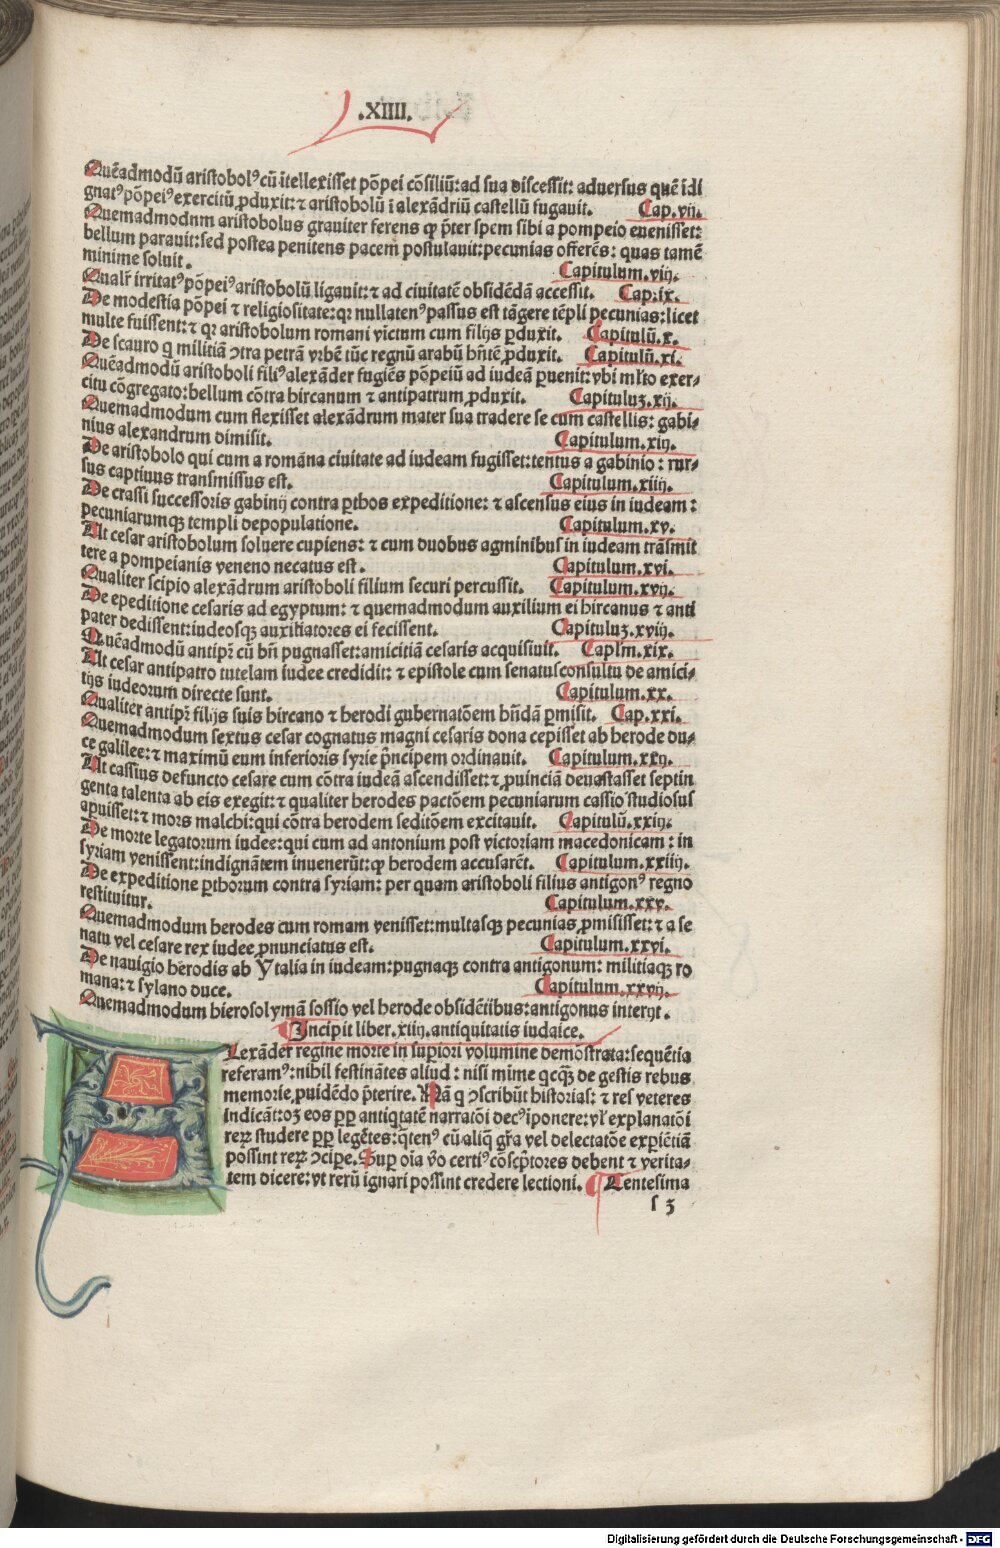 .XIIII.
Quēadmodū aristobolꝰ cū ītellexisset pōpei cōsiliū: ad sua discessit: aduersus quē īdi
gnatꝰ pōpeiꝰ exercitū ꝓduxit: ⁊ aristobolū ī alexādriū castellū fugauit. Cap.vij.
Quemadmodum aristobolus grauiter ferens ꝙ p̄ter spem sibi a pompeio euenisset:
bellum parauit: sed postea penitens pacem postulauit: pecunias offerēs: quas tamē
minime soluit. Capitulum.viij.
Qualr̄ irritatꝰ pōpeiꝰ aristobolū ligauit: ⁊ ad ciuitatē obsidēdā accessit. Cap.ix.
De modestia pōpei ⁊ religiositate: qꝛ nullatenꝰ passus est tāgere tēpli pecunias: licet
multe fuissent: ⁊ qꝛ aristobolum romani victum cum filijs ꝑduxit. Capitulū.x.
De scauro q̄ militiā ↄtra petrā vrbē tūc regnū arabū hn̄tē ꝓduxit. Capitulū.xi.
Quēadmodū aristoboli filiꝰ alexāder fugiēs pōpeiū ad iudeā ꝑuenit: vbi ml̄to exer-
citu cōgregato: bellum cōtra hircanum ⁊ antipatrum ꝓduxit. Capituluꝫ.xij.
Quemadmodum cum flexisset alexādrum mater sua tradere se cum castellis: gabi-
nius alexandrum dimisit. Capitulum.xiij.
De aristobolo qui cum a romāna ciuitate ad iudeam fugisset: tentus a gabinio: rur-
sus captiuus transmissus est. Capitulum.xiiij.
De crassi successoris gabinij contra ꝑthos expeditione: ⁊ ascensus eius in iudeam:
pecuniarumqꝫ templi depopulatione. Capitulum.xv.
Ut cesar aristobolum soluere cupiens: ⁊ cum duobus agminibus in iudeam trāsmit
tere a pompeianis veneno necatus est. Capitulum.xvi.
Qualiter scipio alexādrum aristoboli filium securi percussit. Capitulum.xvij.
De epeditione cesaris ad egyptum: ⁊ quemadmodum auxilium ei hircanus ⁊ anti
pater dedissent: iudeosqꝫ auxiliatores ei fecissent. Capituluꝫ.xviij.
Quēadmodū antipꝛ̄ cū bn̄ pugnasset: amicitiā cesaris acquisiuit. Caplm̄.xix.
Ut cesar antipatro tutelam iudee credidit: ⁊ epistole cum senatusconsultu de amici-
tijs iudeorum directe sunt. Capitulum.xx.
Qualiter antipꝛ̄ filijs suis hircano ⁊ herodi gubernatōem hn̄dā ꝑmisit. Cap.xxi.
Quemadmodum sextus cesar cognatus magni cesaris dona cepisset ab herode du-
ce galilee: ⁊ maximū eum inferioris syrie p̄ncipem ordinauit. Capitulum.xxij.
Ut cassius defuncto cesare cum cōtra iudeā ascendisset: ⁊ ꝓuinciā deuastasset septin
genta talenta ab eis exegit: ⁊ qualiter herodes pactōem pecuniarum cassio studiosus
apuisset: ⁊ mors malchi: qui cōtra herodem seditōem excitauit. Capitulū.xxiij.
De morte legatorum iudee: qui cum ad antonium post victoriam macedonicam: in
syriam venissent: indignātem inuenerūt: ꝙ herodem accusarēt. Capitulum.xxiiij.
De expeditione ꝑthorum contra syriam: per quam aristoboli filius antigonꝰ regno
restituitur. Capitulum.xxv.
Quemadmodum herodes cum romam venisset: multasqꝫ pecunias ꝓmisisset: ⁊ a se
natu vel cesare rex iudee ꝓnunciatus est. Capitulum.xxvi.
De nauigio herodis ab Ytalia in iudeam: pugnaqꝫ contra antigonum: militiaqꝫ ro
mana: ⁊ sylano duce. Capitulum.xxvij.
Quemadmodum hierosolymā sossio vel herode obsidētibus: antigonus interijt.
Incipit liber.xiiij.antiquitatis iudaice.
Alexāder regine morte in suꝑiori volumine demōstrata: sequētia
referamꝰ: nihil festinātes aliud: nisi mīme qcqꝫ de gestis rebus
memorie ꝓuidēdo p̄terire. Nā q̄ ↄscribūt historias: ⁊ res veteres
indicāt: oꝫ eos ꝓpꝑ antiq̄tatē narratōi decꝰ īponere: vl̄ explanatōi
reꝝ studere ꝓpꝑ legētes: q̄tenꝰ cū aliq̄ gr̄a vel delectatōe exꝑiētiā
possint reꝝ ↄciꝑe. Suꝑ oīa v̄o certiꝰ cōsc̄ptores debent ⁊ verita-
tem dicere: vt rerū ignari possint credere lectioni. Centesima
s 3
Digitalisierung gefördert durch die Deutsche Forschungsgemeinschaft - DFG